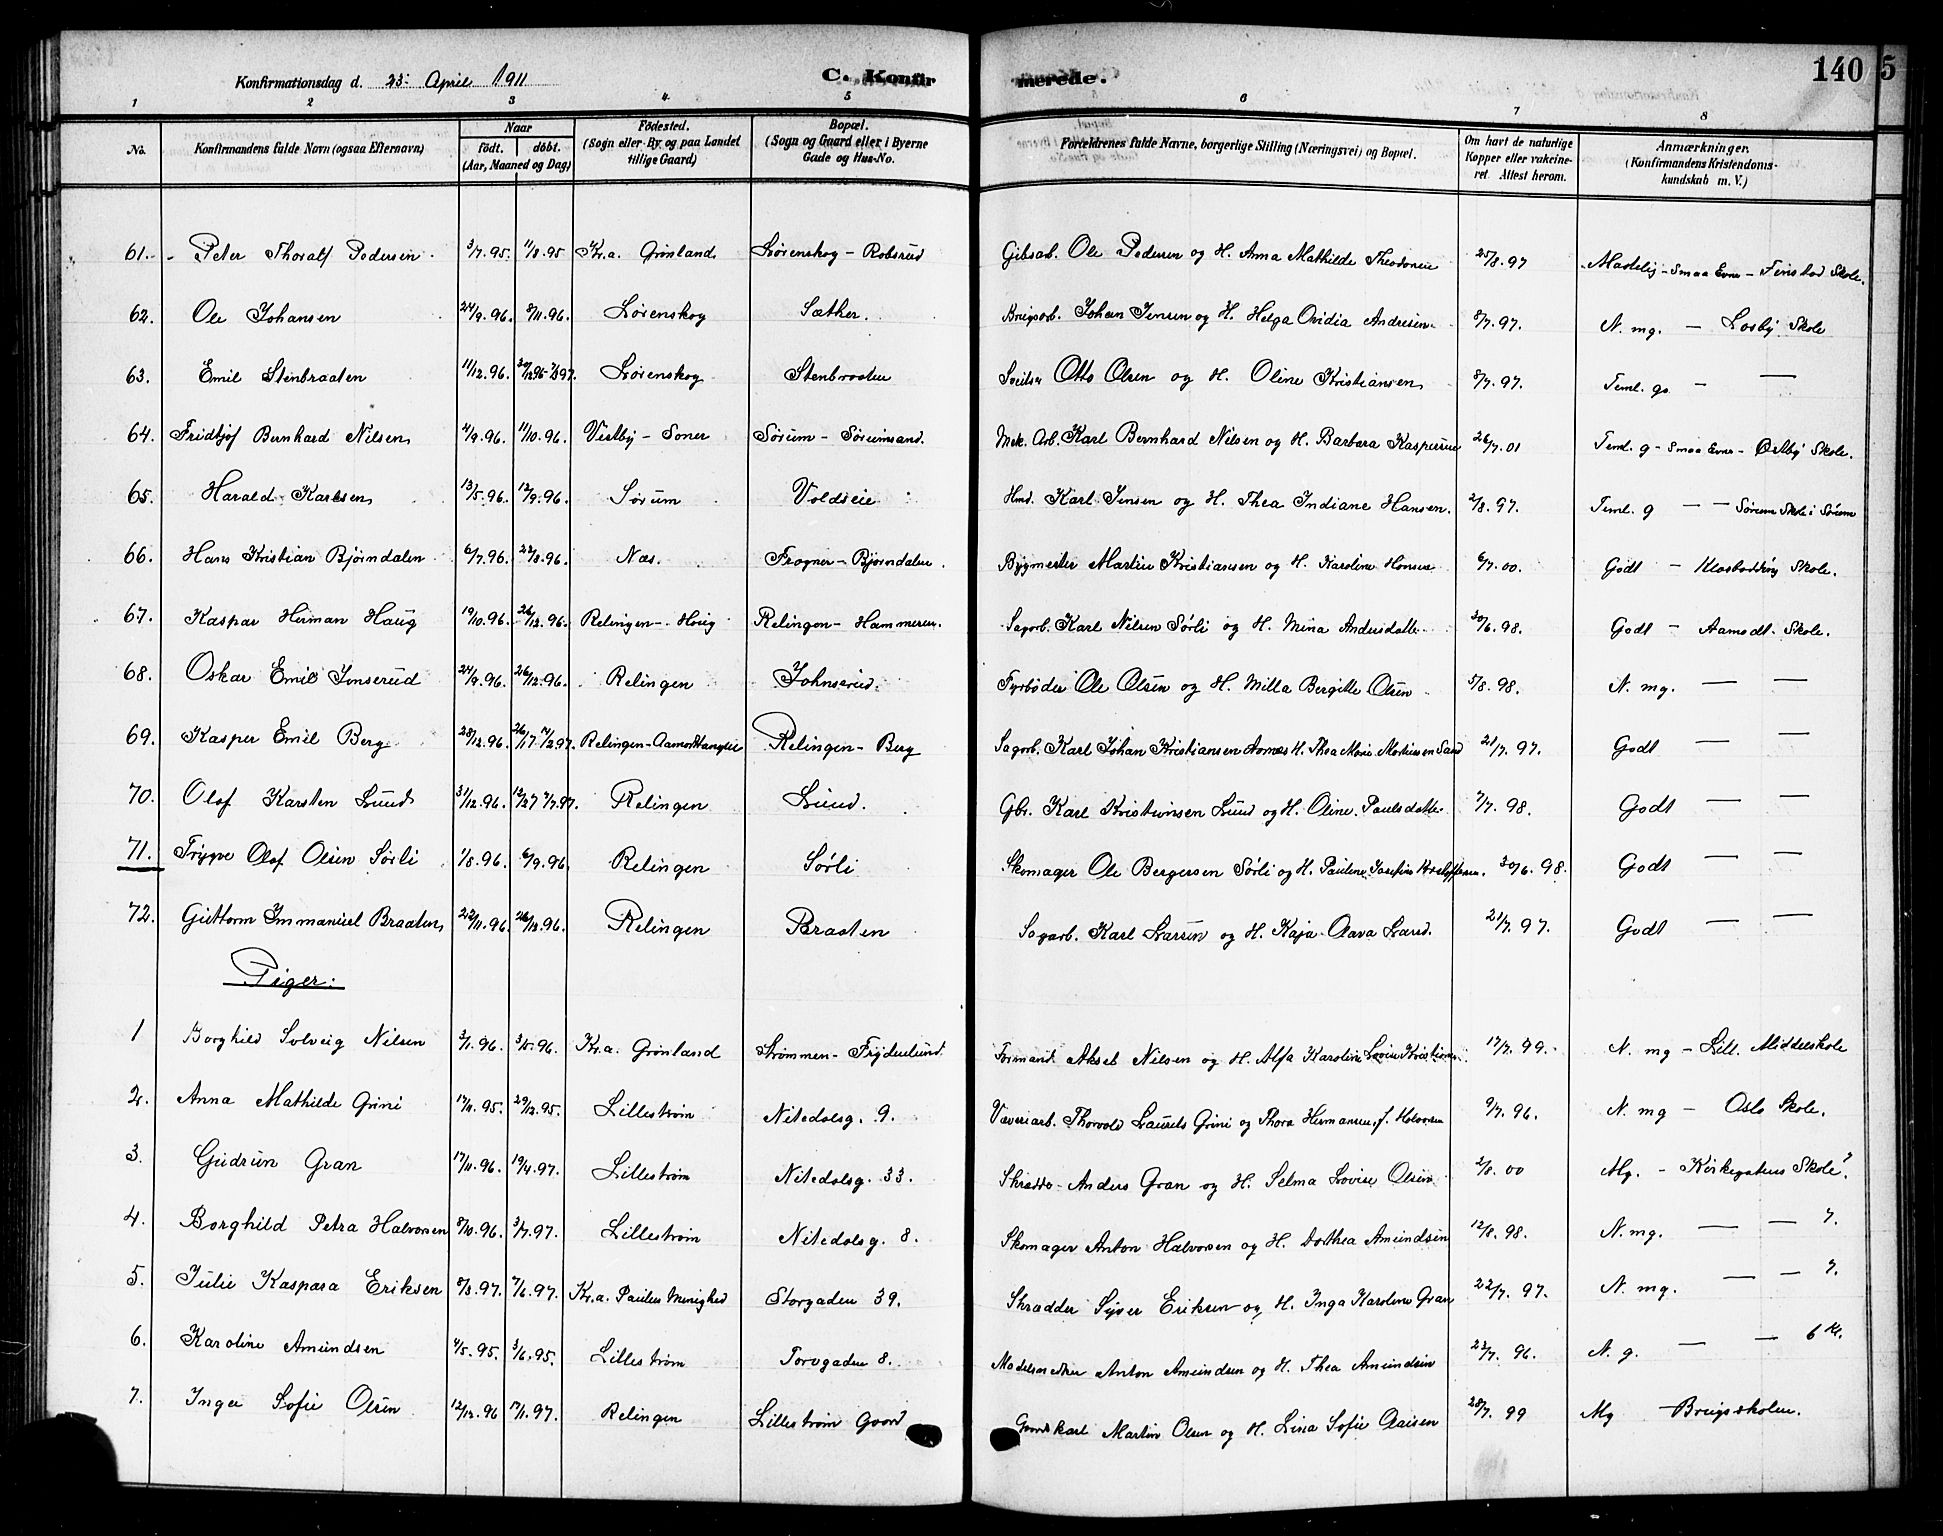 Konfirmationsdag d. 23. April 1911 C. Konfirmerede. 140 5
1 2 3 4 5 6 7 8
No. Konfirmandens fulde Navn (ogsaa Efternavn) Naar født. døbt. (Aar, Maaned og Dag) Fødested. (Sogn eller By og paa Landet tillige Gaard) Bopæl. (Sogn og Gaard eller i Byerne Gade og Hus-No. Forældrenes fulde Navne, borgerlige Stilling (Næringsvei) og Bopæl. Om havt de naturlige Kopper eller vakcineret. Attest herom. Anmærkninger. (Konfirmandens Kristendomskundskab m. V.)
61. Peter Thoralf Pedersen 3/7.95. 11/8.95 Kr.a. Grønland Lørenskog - Robsrud Gibsarb. Ole Pedersen og H. Anna Mathilde 25/8.97 Madelig - Smaa Evner - Finstad Skole.
62. Ole Johansen 24/9.96. 8/11.96. Lørenskog Sæther. Brugsarb. Johan Jensen og H. Helga Ovidia Andresen 8/7.97. N. mg. — Losby Skole
63. Emil Stenbraaten 11/12.96. Lørenskog Stenbraaten Sveitser Otto Olsen og H. Oline Kristiansen 8/7.97. Teml. go — —
64. Fridtjof Bernhard Nilsen 4/9.96. 11/10.96. Vestby - Soner Sørum - Sørumsand. Mek. Arb. Karl Bernhard Nilsen og H. Barbara Kaspersen 26/7.01 Teml. g - Smaa Evner - Østby Skole.
65. Harald Karlsen 13/5.96. 12/9.96. Sørum Voldseie Hmd. Karl Jensen og H. Thea Indiane Hansen. 2/8.97. Teml. g — — Sørum Skole i Sørum
66. Hans Kristian Bjørndalen 6/7.96. 22/8.96. Næs. Frogner - Bjørndalen. Bygmester Martin Kristiansen og H. Karoline Hansen 6/7.00. Godt — Skole.
67. Kaspar Herman Haug 19/10.96. 26/12.96. Relingen - Haug Relingen - Hammeren. Sagarb. Karl Nilsen Sørli og H. Mina Andersdatter 30/6.98. Godt — Aamodt Skole.
68. Oskar Emil Jonserud 24/9.96. 26/12.96. Relingen Johnserud. Fyrbøder Ole Olsen og H. Milla Bergitte Olsen 5/8.98. N. mg. — —
69. Kasper Emil Berg 28/12.96. Relingen - Relingen - Berg Sagarb. Karl Johan Kristiansen Aarnes H. Thea Marie Mortensen Sand 21/7.97. Godt — —
70. Olaf Karsten Lund 31/12.96. Relingen Lund. Gbr. Karl Kristiansen Lund og H. Oline Paulsdatter 7/7.98. Godt — —
71. Trygve Olaf Olsen Sørli 1/8.96. 6/9.96. Relingen Sørli Skomager Ole Bergersen Sørli og H. Pauline Josefine 30/6.98. Godt — —
72. Guttorm Immanuel Braaten 22/11.96. 26/12.96. Relingen Braaten Sagarb. Karl Larsen og H. Kaja 21/7.97. Godt — —
Piger:
1 Borghild Solveig Nilsen 3/1.96. Kr.a. Grønland Strømmen - Frydenlund. Formand Aksel Nilsen og H. Alfa Karoline Lovise 17/7.99. N. mg — Lill. Middelskole
2. Anna Mathilde Grini 17/11.95. 29/12.95. Lillestrøm Nitedalsg. 9. Væveriarb. Thorvald Laurits Grini og Thora Hermansen f. Halvorsen 9/7.96. N. mg — Oslo Skole.
3. Gudrun Gran 17/11.96. 19/4.97. Lillestrøm Nitedalsg. 33. Skrædder Anders Gran og H. Selma Lovise Olsen 2/8.00 Mg. — Kirkegatens Skole 7.
4. Borghild Petra Halvorsen 8/10.96. 3/7.97. Lillestrøm Nitedalsg. 8. Skomager Anton Halvorsen og H. Dorthea Amundsen 12/8.98. N. mg. — — 7.
5. Julie Kaspara Eriksen 8/3.97. 7/6.97. Kr.a. Paulus Menighed Storgaden 39. Skrædder Syver Eriksen og H. Inga Karoline Gran 22/7.97. N. mg. — — 7.
6. Karoline Amundsen 4/5.95. 3/6.95. Lillestrøm Torvgaden 8. Modelsnedker Anton Amundsen og H. Thea Amundsen 22/7.96. N. g. — — 6 Kl.
7. Inga Sofie Olsen 12/12.96 17/1.97. Relingen Lillestrøm Gaard Gaardskarl Martin Olsen og H. Lina Sofie 28/7.99 Mg — Brugsskolen.